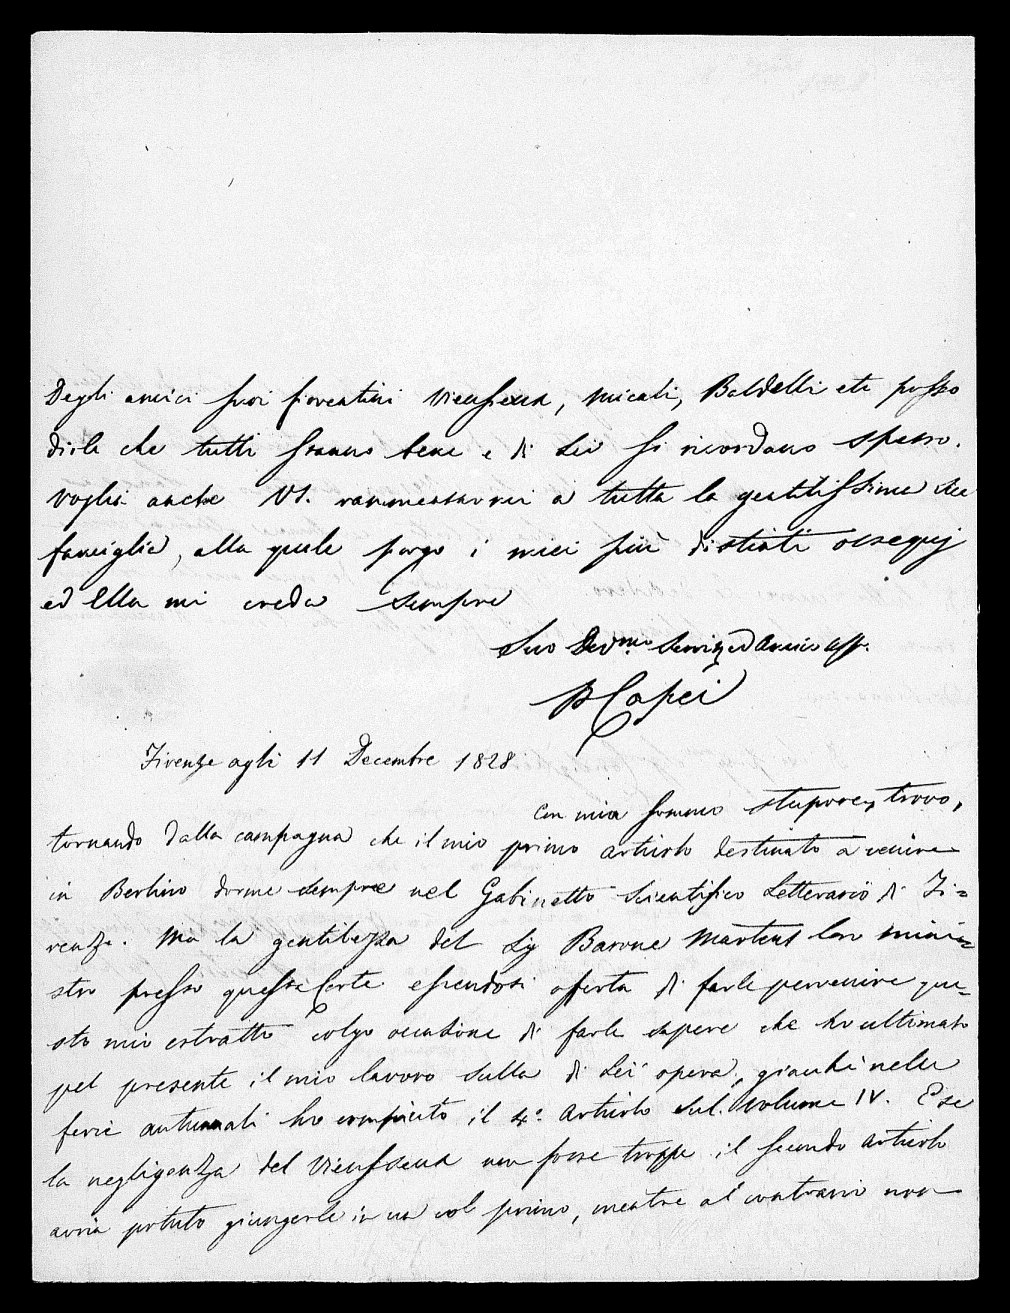 Degli amici suoi fiorentini Vieusseux, Micali, Baldelli etc posso
dirle che tutti stanno bene e di Lei si ricordano spesso.
Voglia anche VS. rammentarmi a tutta la gentilissima sua
famiglia, alla quale porgo i miei più distinti ossequj
ed Ella mi creda sempre
Suo Devmo. Servi. ed Amico aff.
P Capei
Firenze agli 11 Decembre 1828
Con mia somma stupore, trovo,
tornando dalla campagna che il mio primo articolo destinato a venire
in Berlino dorme sempre nel Gabinetto Scientifico Letterario di Fi=
renze. Ma la gentilezza del Sig Barone Martens loro mini=
stro presso questa Corte essendosi offerta di farle pervenire que=
sto mio estratto colgo occasione di farle sapere che ho ultimato
pel presente il mio lavoro sulla di Lei opera, giacché nelle
ferie autunnali ho compiuto il 4.° articolo sul volume IV. E se
la negligenza del Vieusseux non fosse troppa il secondo articolo
avria potuto giungerle in un col primo, mentre al contrario non